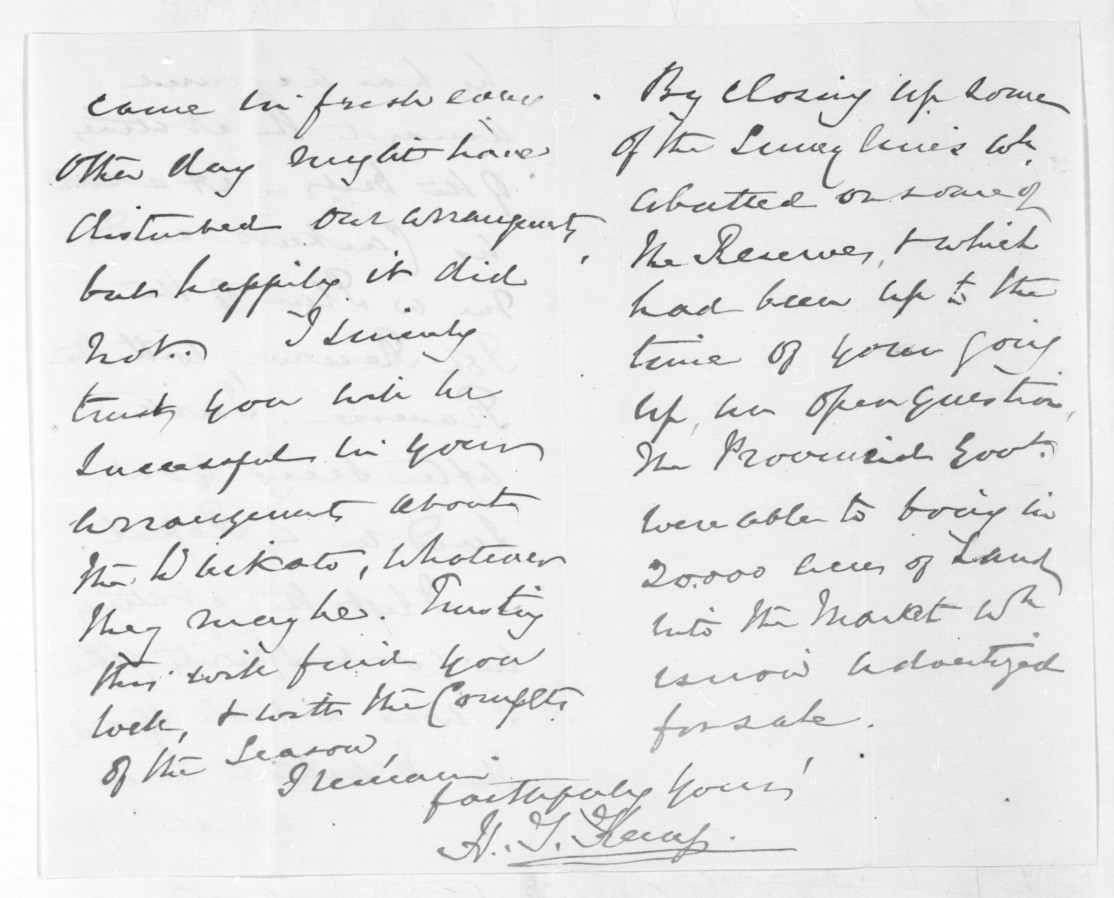 came in fresh
other day might have
disturbed our arrangements,
but happily it did
not. I sincerely
trust you will be
successful in your
arrangements about
the Waikato, whatever
they may be. Trusting
this will find you
well, & with the Complts
of the Season,
I remain
faithfully Yours
H. T. Kemp.
By closing up some
of the Survey lines wh
abutted on some of
the Reserves, & which
had been up to the
time of your going
up, an open question,
the Provincial Govt.
were able to bring in
20.000 acres of Land
into the Market wh
is now advertized
for sale.